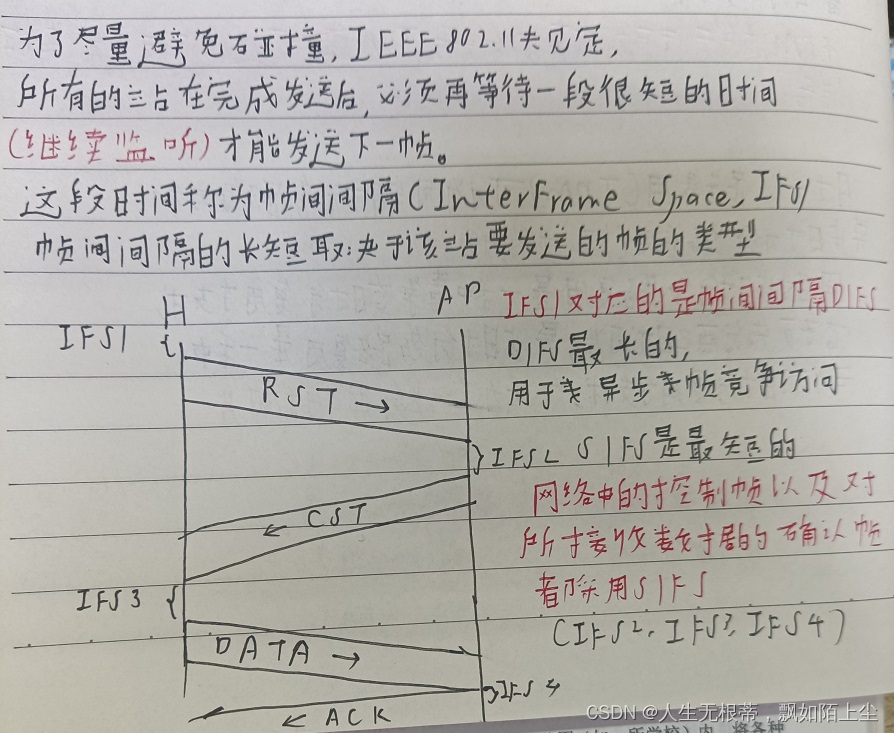 为了尽量避免碰撞，IEEE802.11规定，
所有的站在完成发送后，必须再等待一段很短的时间
（继续监听）才能发送下一帧。
这段时间称为帧间间隔（InterFrame Space，IFS）
帧间间隔的长短取决于该站要发送的帧的类型
H
AP
IFS1对应的是帧间间隔DIFS
IFS1
DIFS最长的，
用于异步类帧竞争访问
RST →
IFS2
SIFS是最短的
网络中的控制帧以及对
← CST
所接收数据的确认帧
都采用SIFS
IFS3
（IFS2，IFS3，IFS4）
DATA →
IFS4
← ACK
CSDN @人生无根蒂，飘如陌上尘
学校）内，将各种